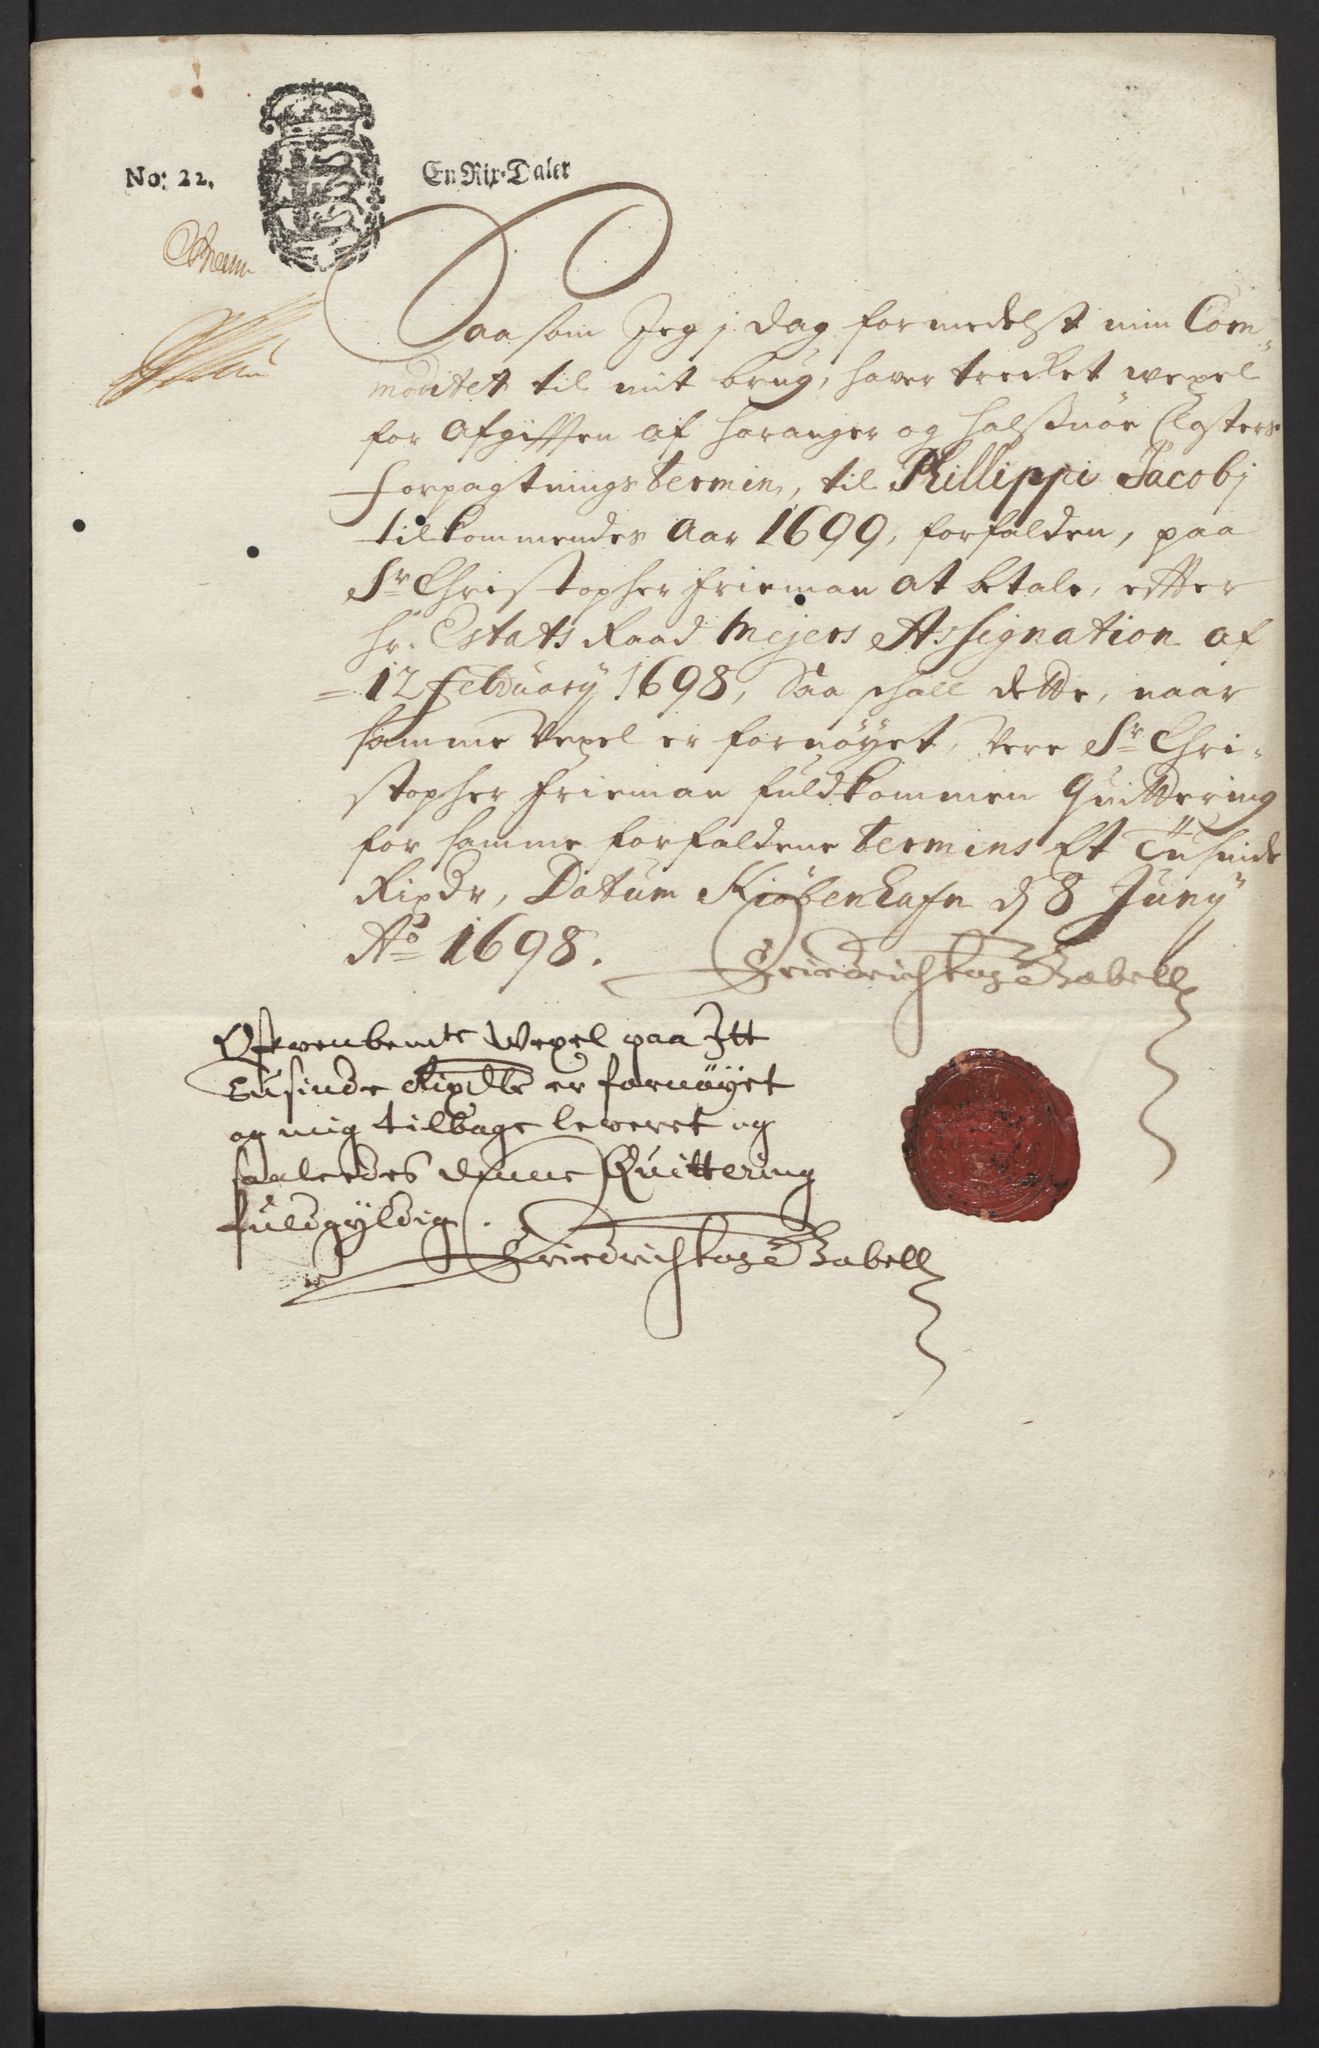 No: 22.
En Rix-Daler
Saa som Jeg j dag formedelst min Com-
moditet til mit brug, haver trecket wexel
for Afgifften af Haranger og Halsnöe Closters
forpagtnings termin, til Phillippi Jacobj
tilkommendes Aar 1699, forfalden, paa
Sr Christopher Frieman at betale, efter
Hr. Estats Raad Mejers Assignation af
12 February 1698, Saa schall dette, naar
samme Vexel er fornöyet, Vere Sr Chri-
stopher Frieman fuldkommen Quittering
for samme forfaldene termins Et Tusinde
Rixdr, Datum Kiöbenhafn d 8 Juny
Ao 1698.
Friedrich Gabell
Ofwenbemte Wexel paa Itt
Tusinde Rixdlr er fornöyet
og mig tilbage leweret og
saaleedes denne Quittering
fuldgyldig.
Friedrich Gabell